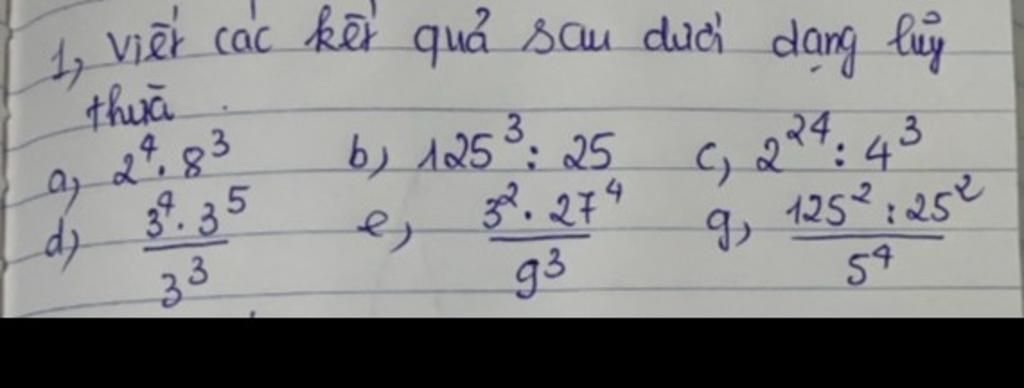 1, viết các kết quả sau dưới dạng lũy
thừa.
a, 2⁴ . 8³ b, 125³ : 25 c, 2²⁴ : 4³
d, (3⁴ . 3⁵)/3³ e, (3² . 27⁴)/9³ g, (125² : 25²)/5⁴